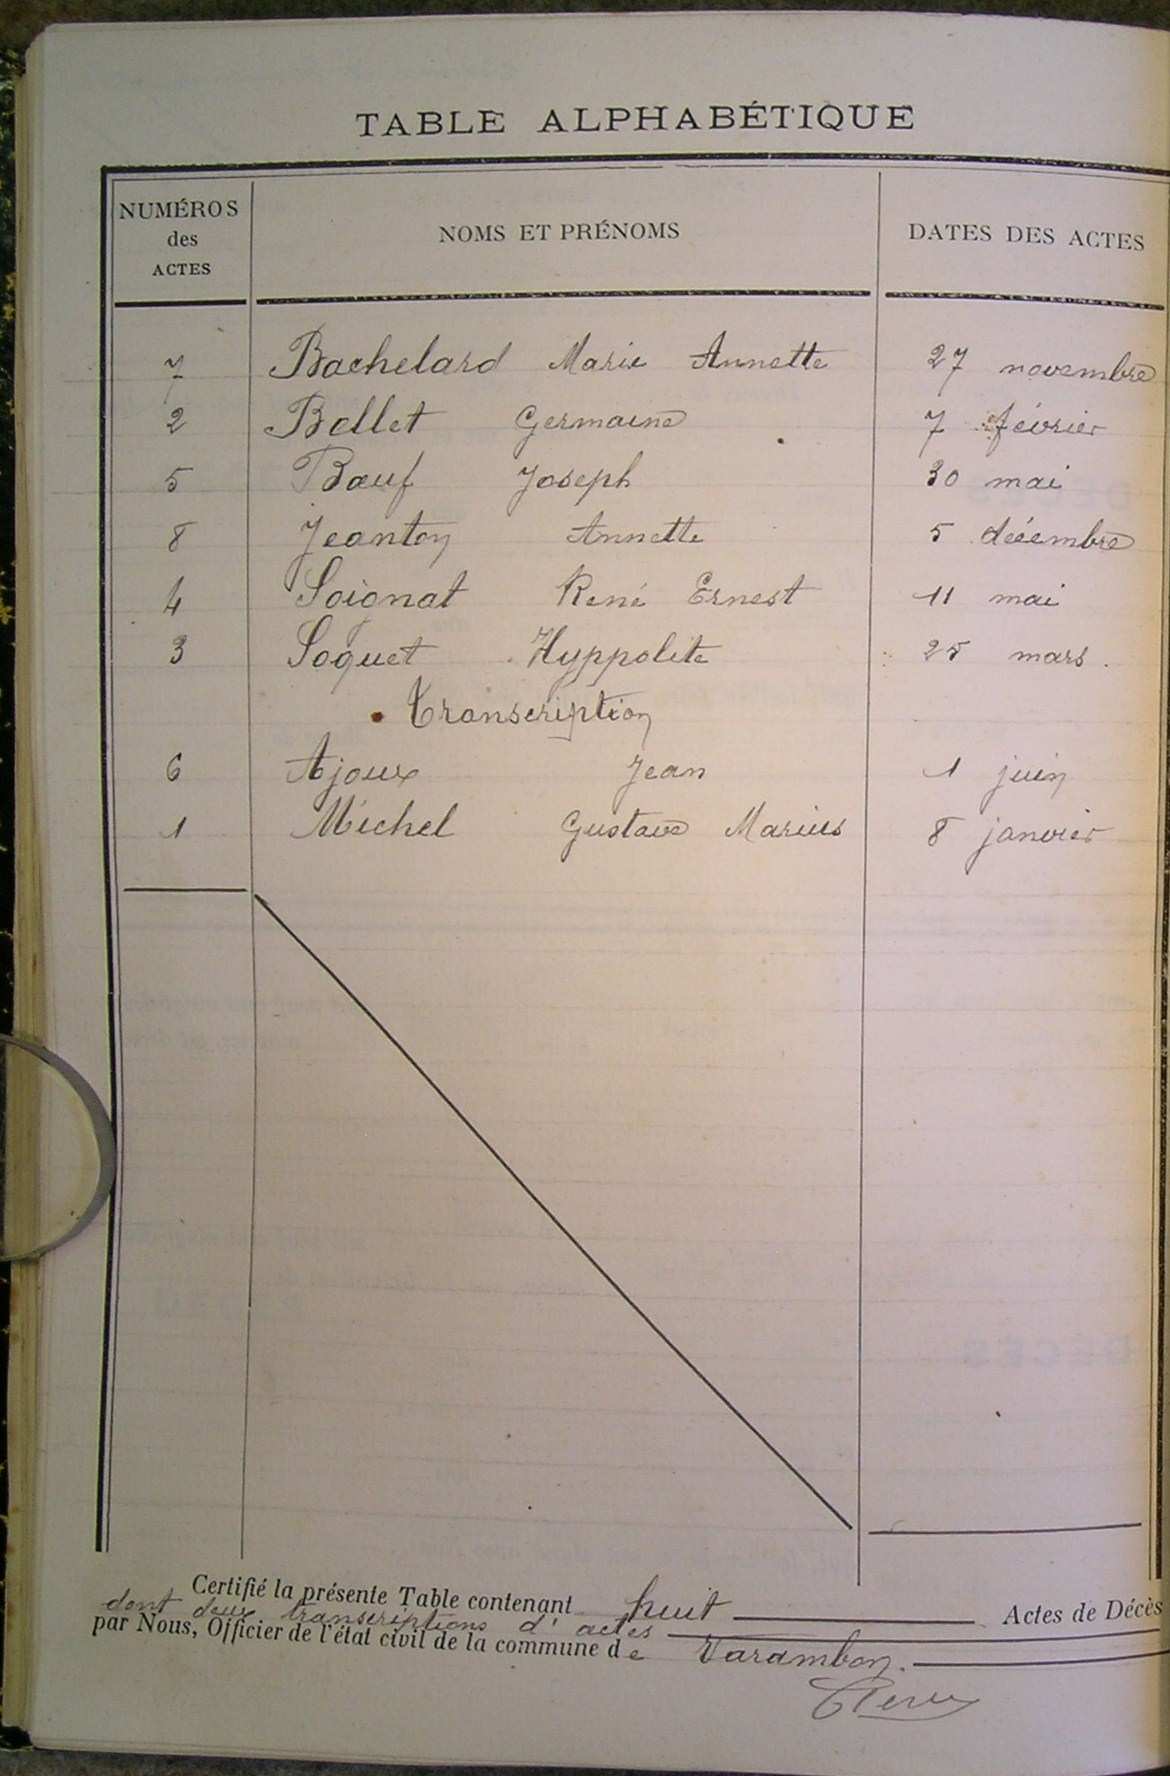 TABLE ALPHABÉTIQUE
NUMÉROS des ACTES NOMS ET PRÉNOMS DATES DES ACTES
7 Bachelard Marie Annette 27 novembre
2 Bellet Germaine 7 février
5 Bœuf Joseph 30 mai
8 Jeanton Annette 5 décembre
4 Soignat René Ernest 11 mai
3 Soquet Hyppolite 25 mars
Transcription
6 Ajoux Jean 1 juin
1 Michel Gustave Marius 8 janvier
Certifié la présente Table contenant huit Actes de Décès
dont deux transcriptions d'actes
par Nous, Officier de l'état civil de la commune de Varambon.